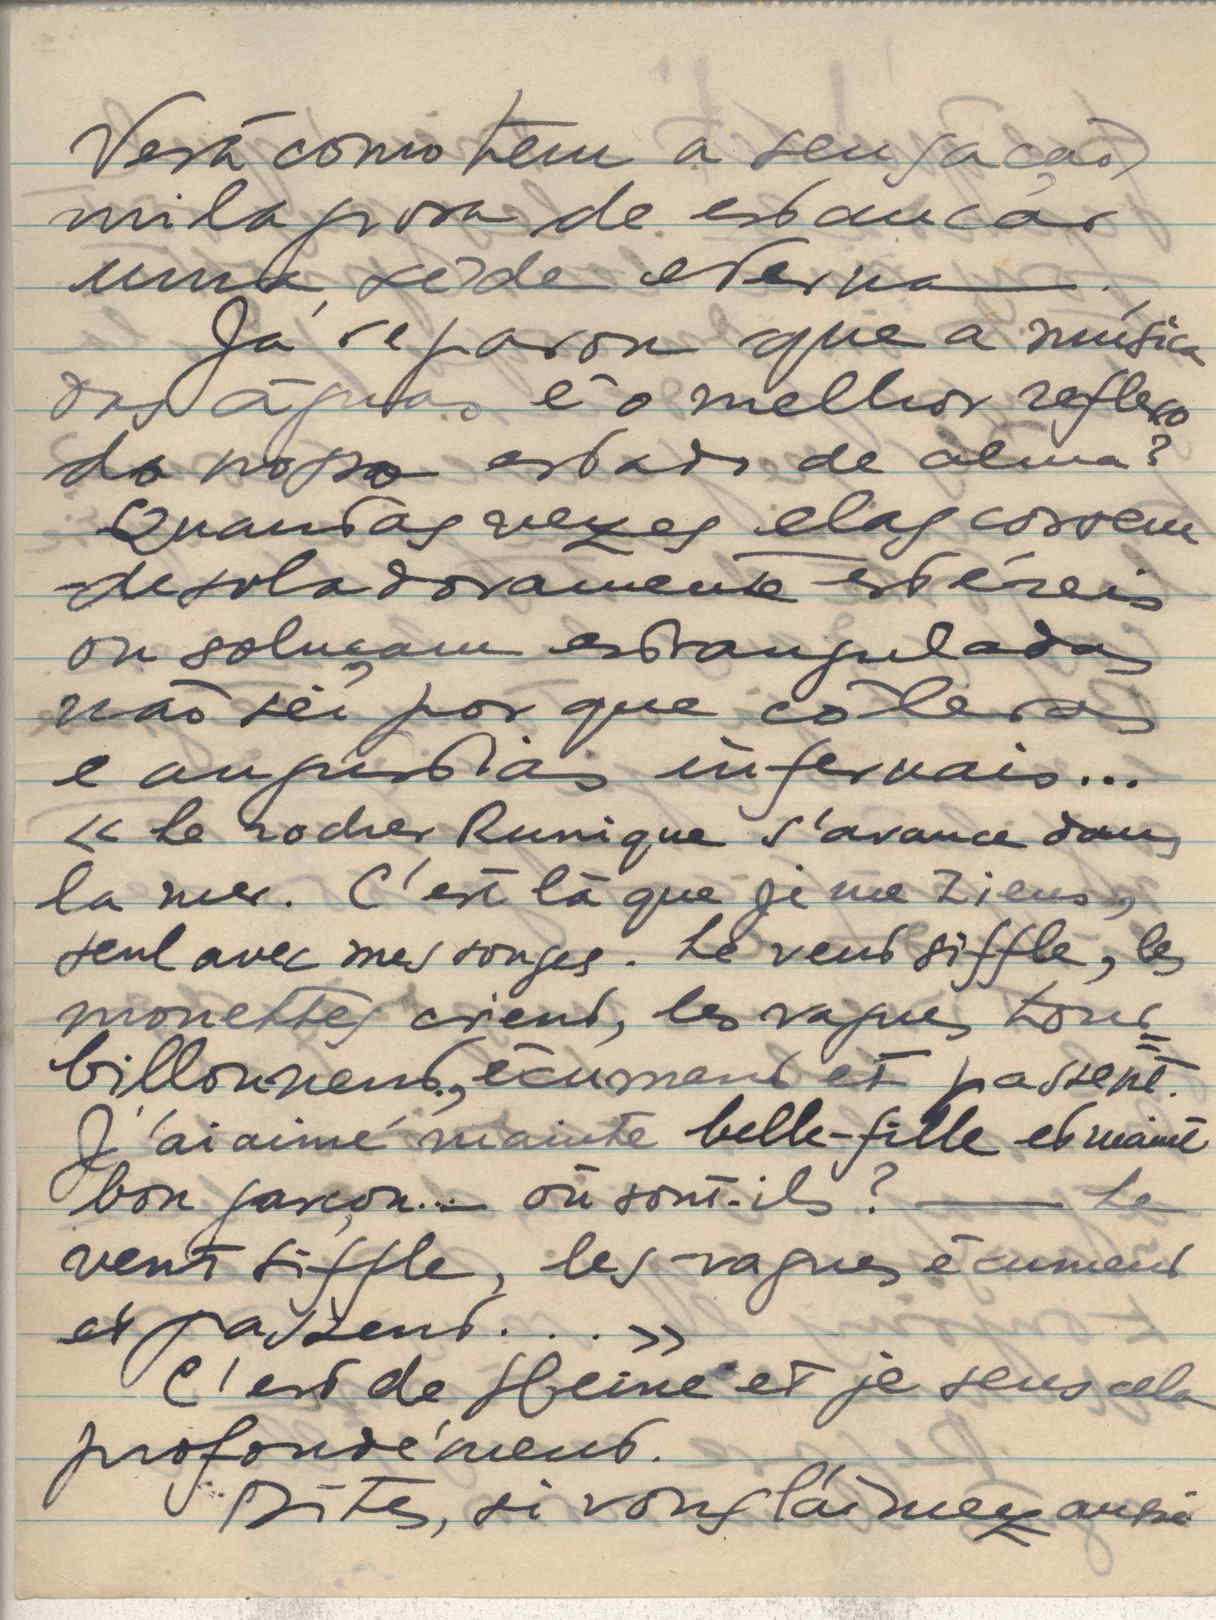 Verá como tem a sensação
milagrosa de estancar
uma sêde eterna.
Já reparou que a música
das águas é o melhor reflexo
do nosso estado de alma?
Quantas vezes elas correm
desoladoramente estéreis
ou soluçam estranguladas
não sei por que cóleras
e angustias infernais...
« Le rocher Runique s'avance dans
la mer. C'est là que je me tiens,
seul avec mes songes. Le vent siffle, les
mouettes crient, les vagues tour=
billonnent, écument et passent.
J'ai aimé mainte belle-fille et maint
bon garçon... où sont-ils? — Le
vent siffle, les vagues écument
et passent... »
C'est de Heine et je sens cela
profondément.
Dites, si vous l'aimez aussi